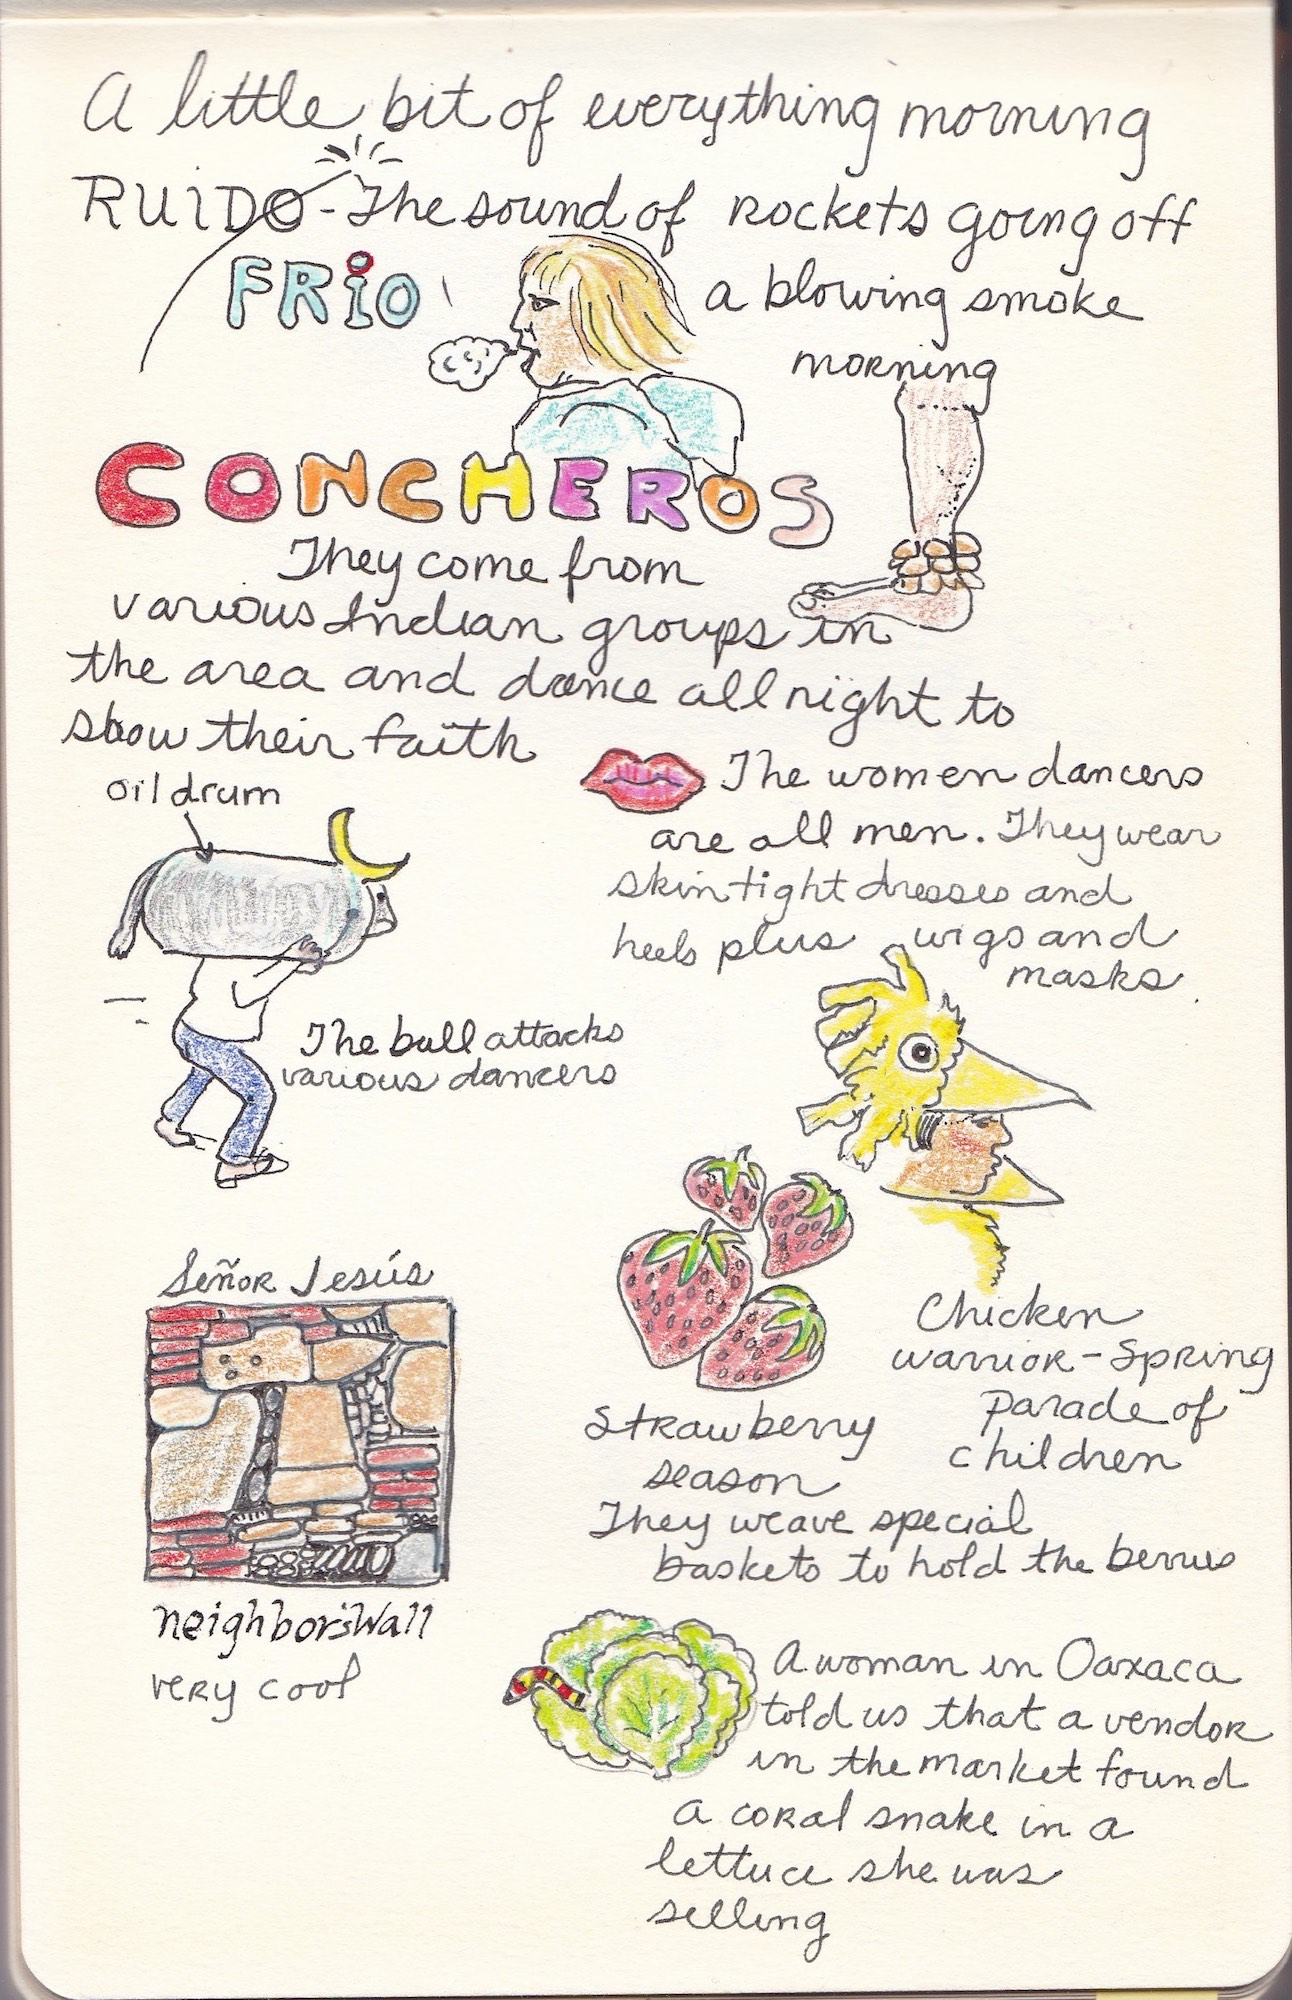 A little bit of everything morning
RUIDO - The sound of rockets going off
FRIO
a blowing smoke
morning
CONCHEROS
They come from
various Indian groups in
the area and dance all night to
show their faith
oil drum
The bull attacks
various dancers
The women dancers
are all men. They wear
skin tight dresses and
heels plus wigs and
masks.
Chicken
warrior - Spring
parade of
children
Strawberry
season
They weave special
baskets to hold the berries
Señor Jesús
neighbor's wall
very cool
A woman in Oaxaca
told us that a vendor
in the market found
a coral snake in a
lettuce she was
selling